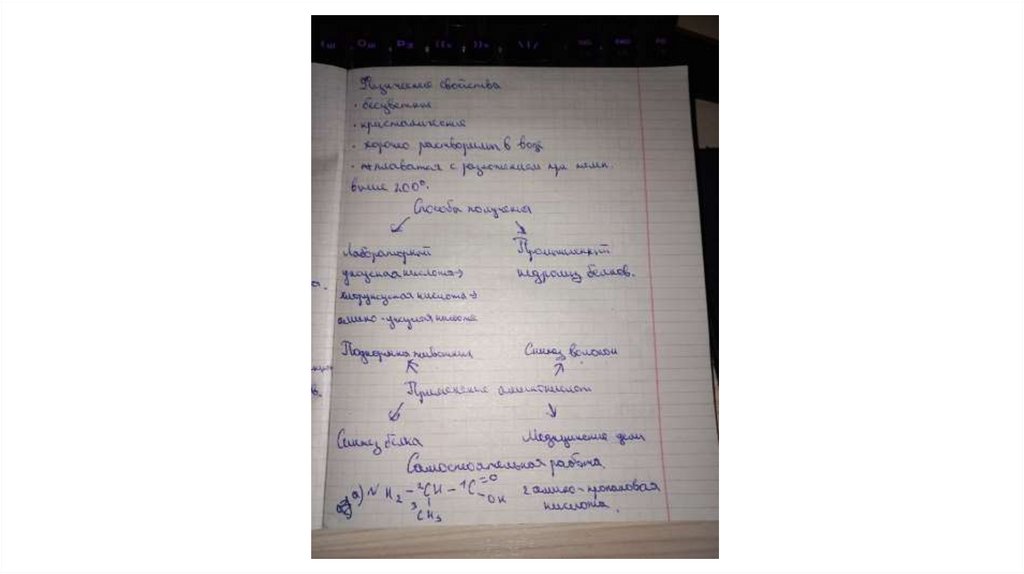 Физические свойства
· бесцветные
· кристалические
· хорошо растворимы в воде
· плавятся с разложением при темп.
выше 200°.
Способы получения
Лабораторный Промышленный
уксусная кислота→ гидролиз белков.
хлоруксусная кислота→
амино-уксусная кислота
Подкормка животных Синтез волокон
Применение аминокислот
Синтез белка Медицинские цели
Самостоятельная работа
а) NH₂ - ²CH - ¹C =O -OH 2 амино-пропановая
³CH₃ кислота.